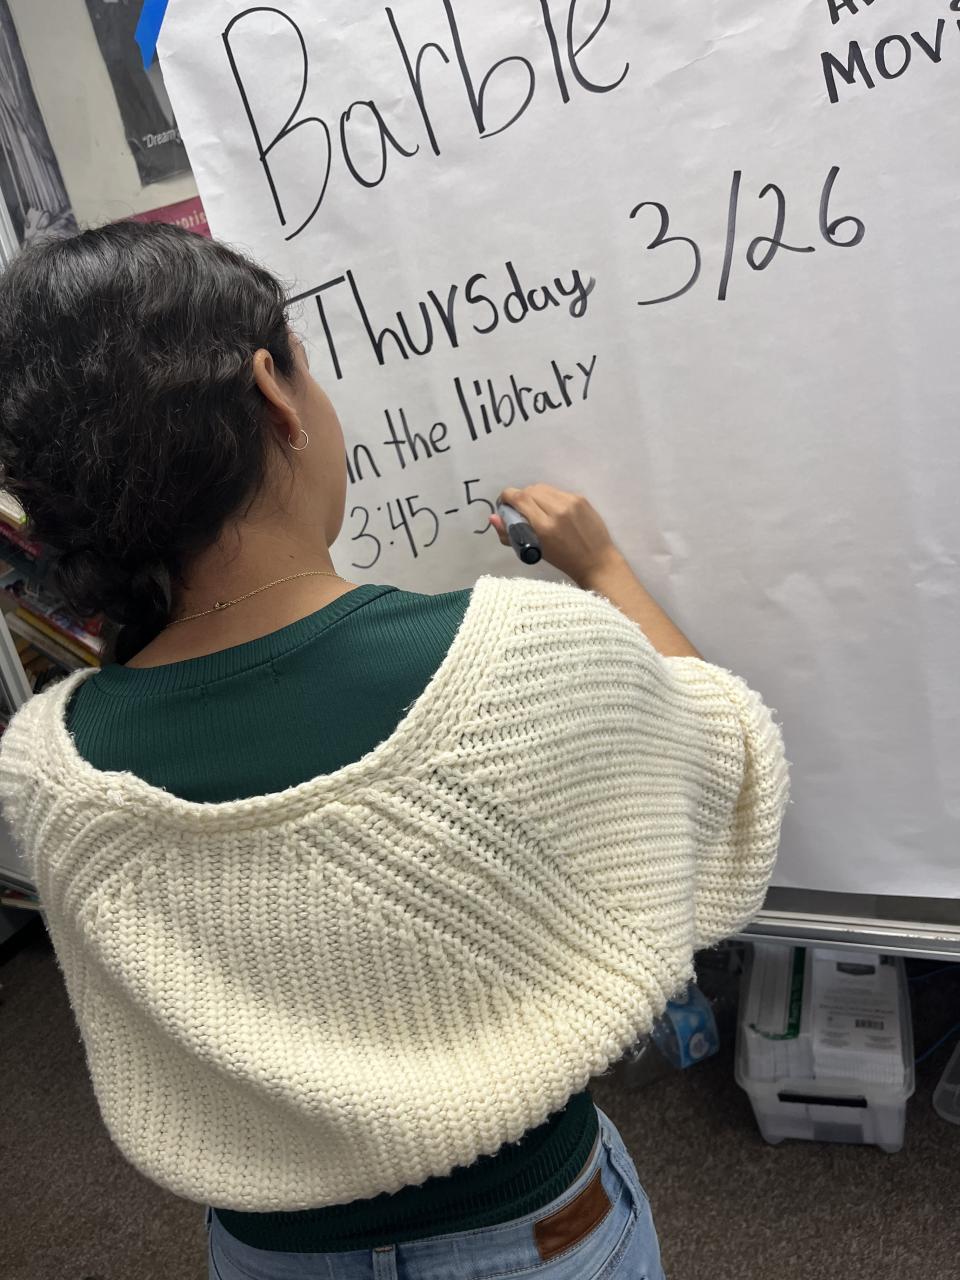 Barbie
MOVI
Thursday 3/26
in the library
3:45-5
"Dream